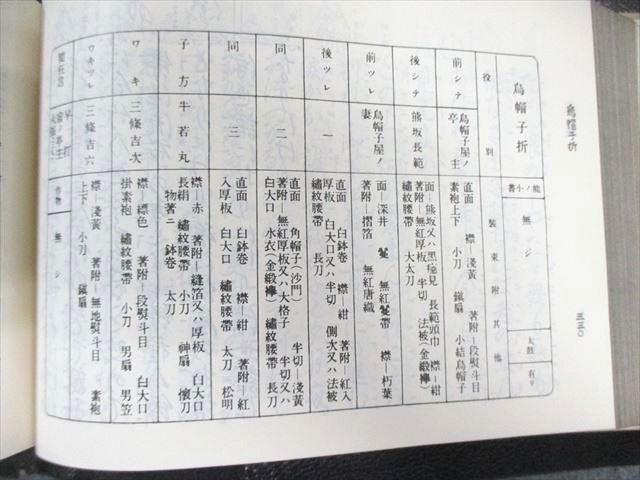 烏帽子折
三三〇
烏帽子折
能ノ小書
無シ
太鼓
有リ
役別
装束附其他
前シテ
烏帽子屋ノ亭主
直面 襟―淺黃 著附―段熨斗目
素袍上下 小刀 鎭扇 小結烏帽子
後シテ
熊坂長範
面―熊坂又ハ黑癋見 長範頭巾 襟―紺
著附―無紅厚板 半切 法被(金緞襷)
繡紋腰帶 大太刀
前ツレ
烏帽子屋ノ妻
面―深井 鬘 無紅鬘帶 襟―朽葉
著附―摺箔 無紅唐織
後ツレ
一
直面 白鉢卷 襟―紺 著附―紅入
厚板 白大口又ハ半切 側次又ハ法被
繡紋腰帶 長刀
同
二
直面 角帽子(沙門) 半切―淺黃
著附―無紅厚板又ハ大格子 半切又ハ
白大口 水衣(金緞襷) 繡紋腰帶 長刀
同
三
直面 白鉢卷 襟―紺 著附―紅
入厚板 白大口 繡紋腰帶 太刀 松明
子方
牛若丸
襟―赤 著附―縫箔又ハ厚板 白大口
長絹 繡紋腰帶 小刀 神扇 懷刀
物著ニ 鉢卷 太刀
ワキ
三條吉次
襟―縹色 著附―段熨斗目 白大口
掛素袍 繡紋腰帶 小刀 男扇 男笠
ワキツレ
三條吉六
襟―淺黃 著附―無地熨斗目 素袍
上下 小刀 鎭扇
間狂言
早打
作物
無シ